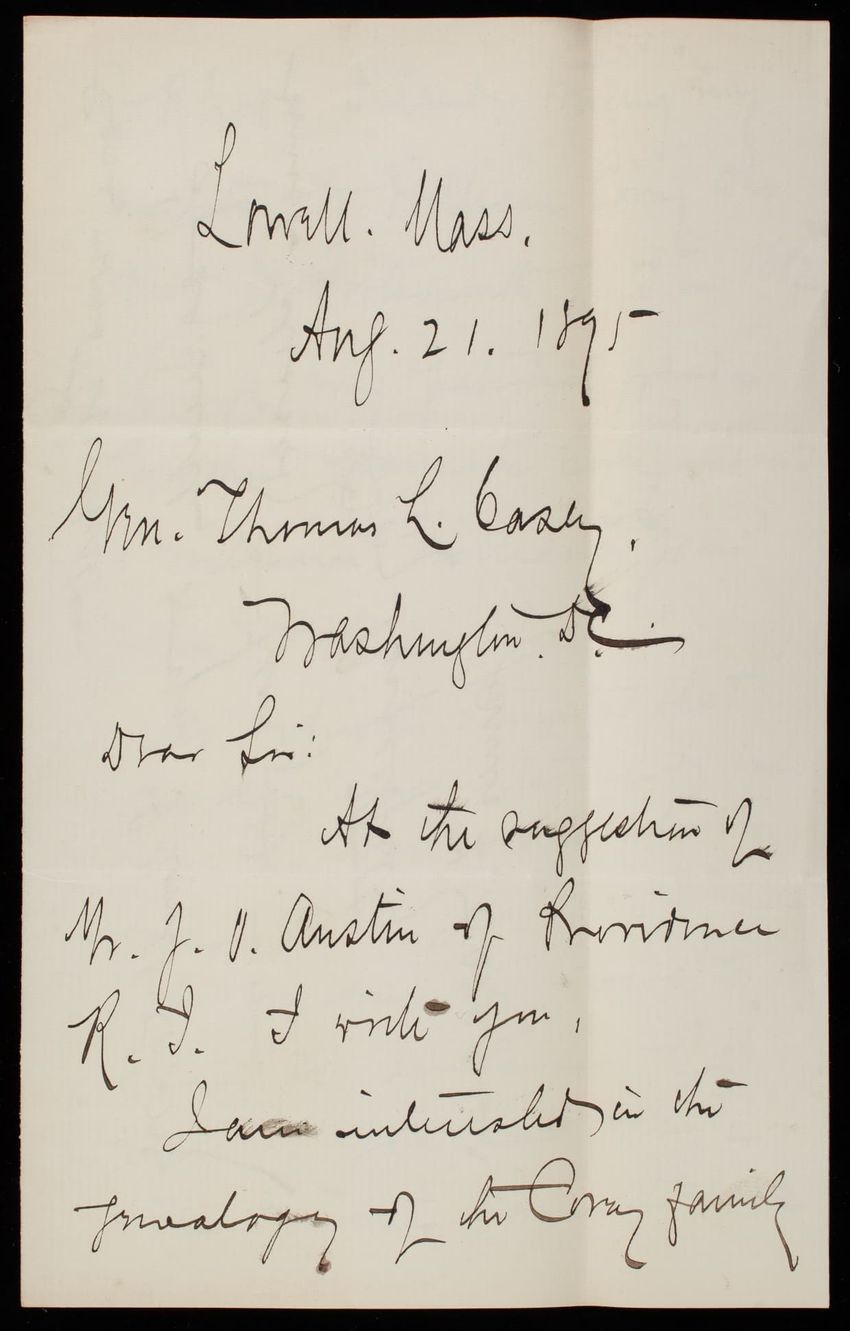 Lowell. Mass.
Aug. 21. 1895
Gen. Thomas L. Casey.
Washington. D.C.
Dear Sir:
At the suggestion of
Mr. J. O. Austin of Providence
R. I. I write you.
I am interested in the
genealogy of the Corey family